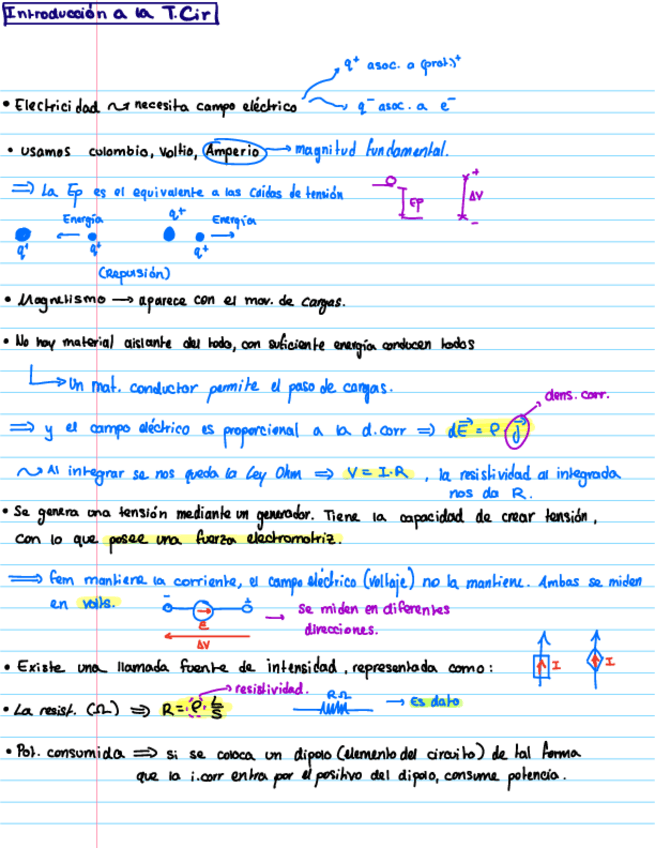 Introducción a la T.Cir
q+ asoc. a (prot.)+
• Electricidad ⤳ necesita campo eléctrico
q- asoc. a e-
• usamos culombio, Voltio, Amperio → magnitud fundamental.
⇒ La Ep es el equivalente a las caidas de tensión
Ep
+
ΔV
-
Energía q+ Energía
q+ q+ q+
(Repulsión)
• Magnetismo → aparece con el mov. de cargas.
• No hay material aislante del todo, con suficiente energía conducen todos
Un mat. conductor permite el paso de cargas.
dens. corr.
⇒ y el campo eléctrico es proporcional a la d.corr ⇒ dE⃗ = ρ · j⃗
⤳ Al integrar se nos queda la Ley Ohm ⇒ V = I·R , la resistividad al integrada
nos da R.
• Se genera una tensión mediante un generador. Tiene la capacidad de crear tensión,
con lo que posee una fuerza electromotriz.
⇒ fem mantiene la corriente, el campo eléctrico (voltaje) no la mantiene. Ambas se miden
en volts.
- +
E
ΔV
→ Se miden en diferentes
direcciones.
• Existe una llamada fuente de intensidad, representada como:
I I
→ resistividad.
• La resist. (Ω) ⇒ R = ρ · L/S
RΩ
→ Es dato
• Pot. consumida ⇒ si se coloca un dipolo (elemento del circuito) de tal forma
que la i.corr entra por el positivo del dipolo, consume potencia.